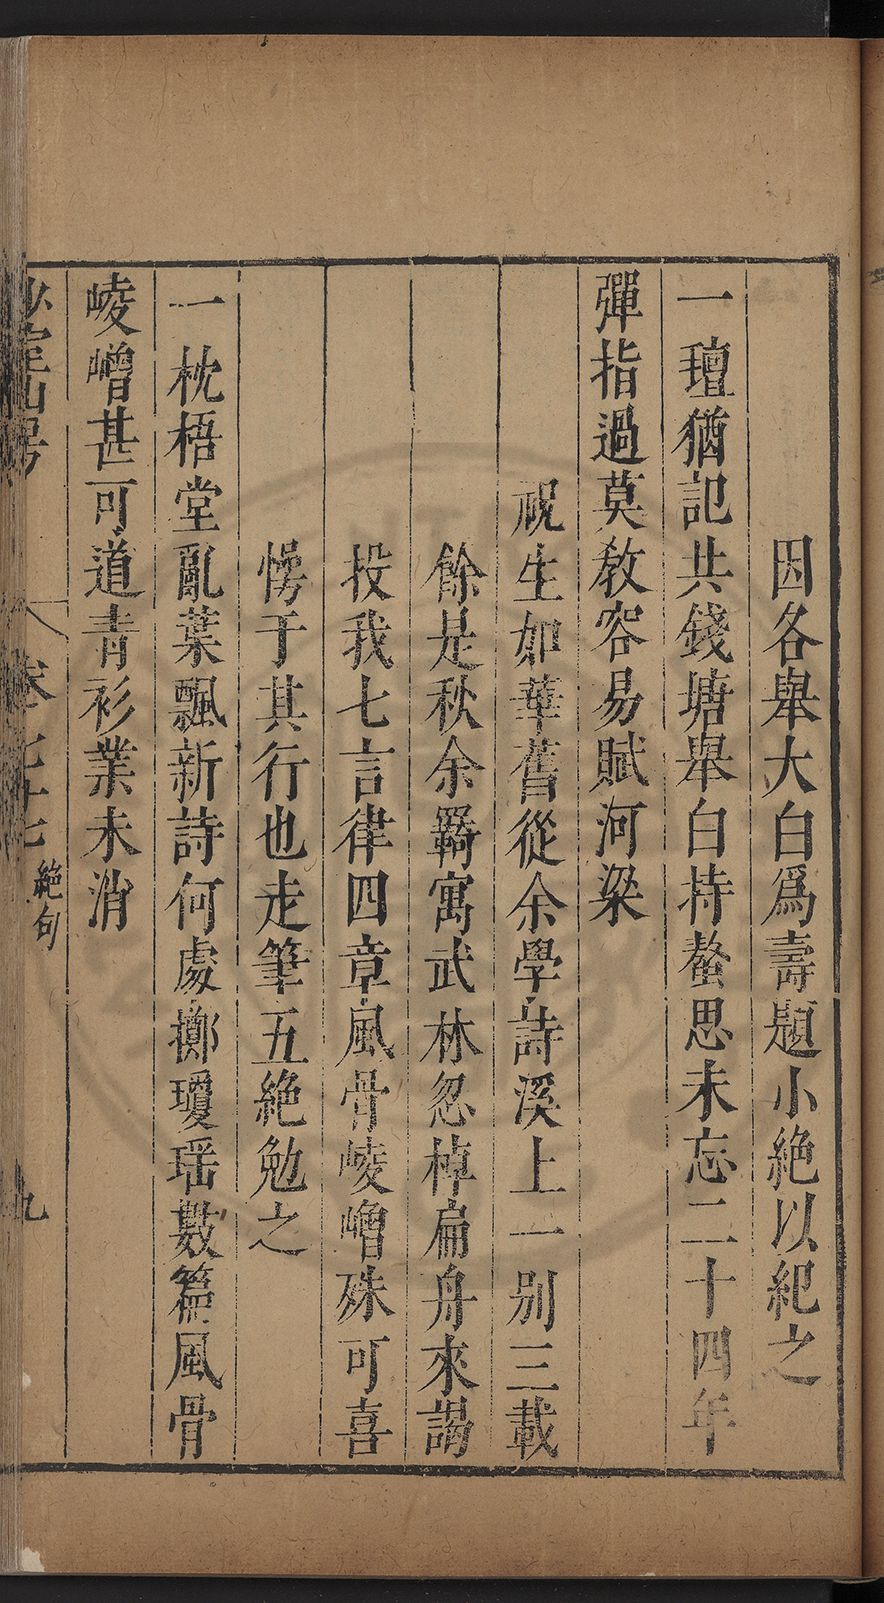 因各舉大白爲壽題小絶以紀之
一璮猶記共錢塘舉白持螯思未忘二十四年
彈指過莫教容易賦河梁
祝生如華舊從余學詩溪上一别三載
餘是秋余羇寓武林忽棹扁舟來謁
投我七言律四章風骨崚嶒殊可喜
愣于其行也走筆五絶勉之
一枕梧堂亂葉飄新詩何處擲瓊瑶數篇風骨
崚嶒甚可道青衫業未消
少室山房
卷七十七
絶句
九